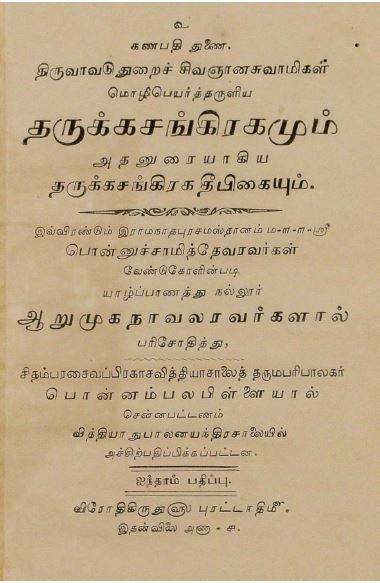 உ
கணபதி துணை.
திருவாவடுதுறைச் சிவஞானசுவாமிகள்
மொழிபெயர்த்தருளிய
தருக்கசங்கிரகமும்
அதனுரையாகிய
தருக்கசங்கிரகதீபிகையும்.
இவ்விரண்டும் இராமநாதபுரசமஸ்தானம் ம-ள-ள-ஸ்ரீ
பொன்னுச்சாமித்தேவரவர்கள்
வேண்டுகோளின்படி
யாழ்ப்பாணத்து நல்லூர்
ஆறுமுகநாவலரவர்களால்
பரிசோதித்து,
சிதம்பரசைவப்பிரகாசவித்தியாசாலைத் தருமபரிபாலகர்
பொன்னம்பலபிள்ளையால்
சென்னபட்டணம்
வித்தியாநுபாலனயந்திரசாலையில்
அச்சிற்பதிப்பிக்கப்பட்டன.
ஐந்தாம் பதிப்பு.
விரோதிகிருது௵ புரட்டாதி௴.
இதன்விலை அணா - ச.